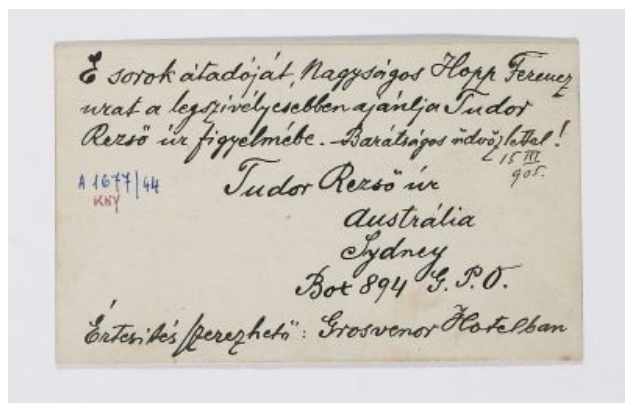 E sorok átadóját, Nagyságos Hopp Ferencz
urat a legszivélyesebben ajánlja Tudor
Rezső úr figyelmébe. – Barátságos üdvözlettel!
15 III
905.
A 1677/44
KNY
Tudor Rezső úr
Austrália
Sydney
Box 894 G. P. O.
Értesítés szerezhető: Grosvenor Hotelban